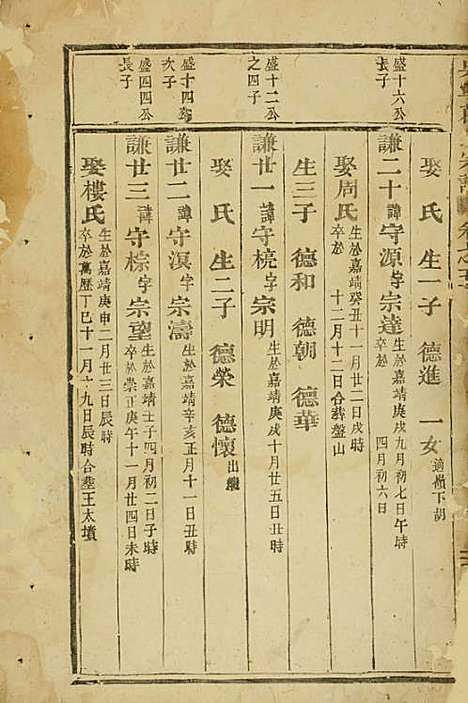 娶 氏 生一子 德進 一女 適嶺下胡
盛十六公
長子
謙二十 諱 守源 字 宗達 生於嘉靖庚戌九月初七日午時
卒於 四月初六日
娶周氏 生於嘉靖癸丑十一月廿二日戌時
卒於 十二月十二日合葬盤山
生三子 德和 德朝 德華
盛十二公
之四子
謙廿一 諱 守 字 宗明 生於嘉靖庚戌十月廿五日丑時
娶 氏 生二子 德榮 德懷 出繼
盛十四公
次子
謙廿二 諱 守溟 字 宗濤 生於嘉靖辛亥正月十一日丑時
卒於
盛四四公
長子
謙廿三 諱 守棕 字 宗望 生於嘉靖壬子四月初二日子時
卒於崇正庚午十一月廿四日未時
娶樓氏 生於嘉靖庚申二月廿三日辰時
卒於萬歷丁巳十一月 九日辰時合塟王太墳